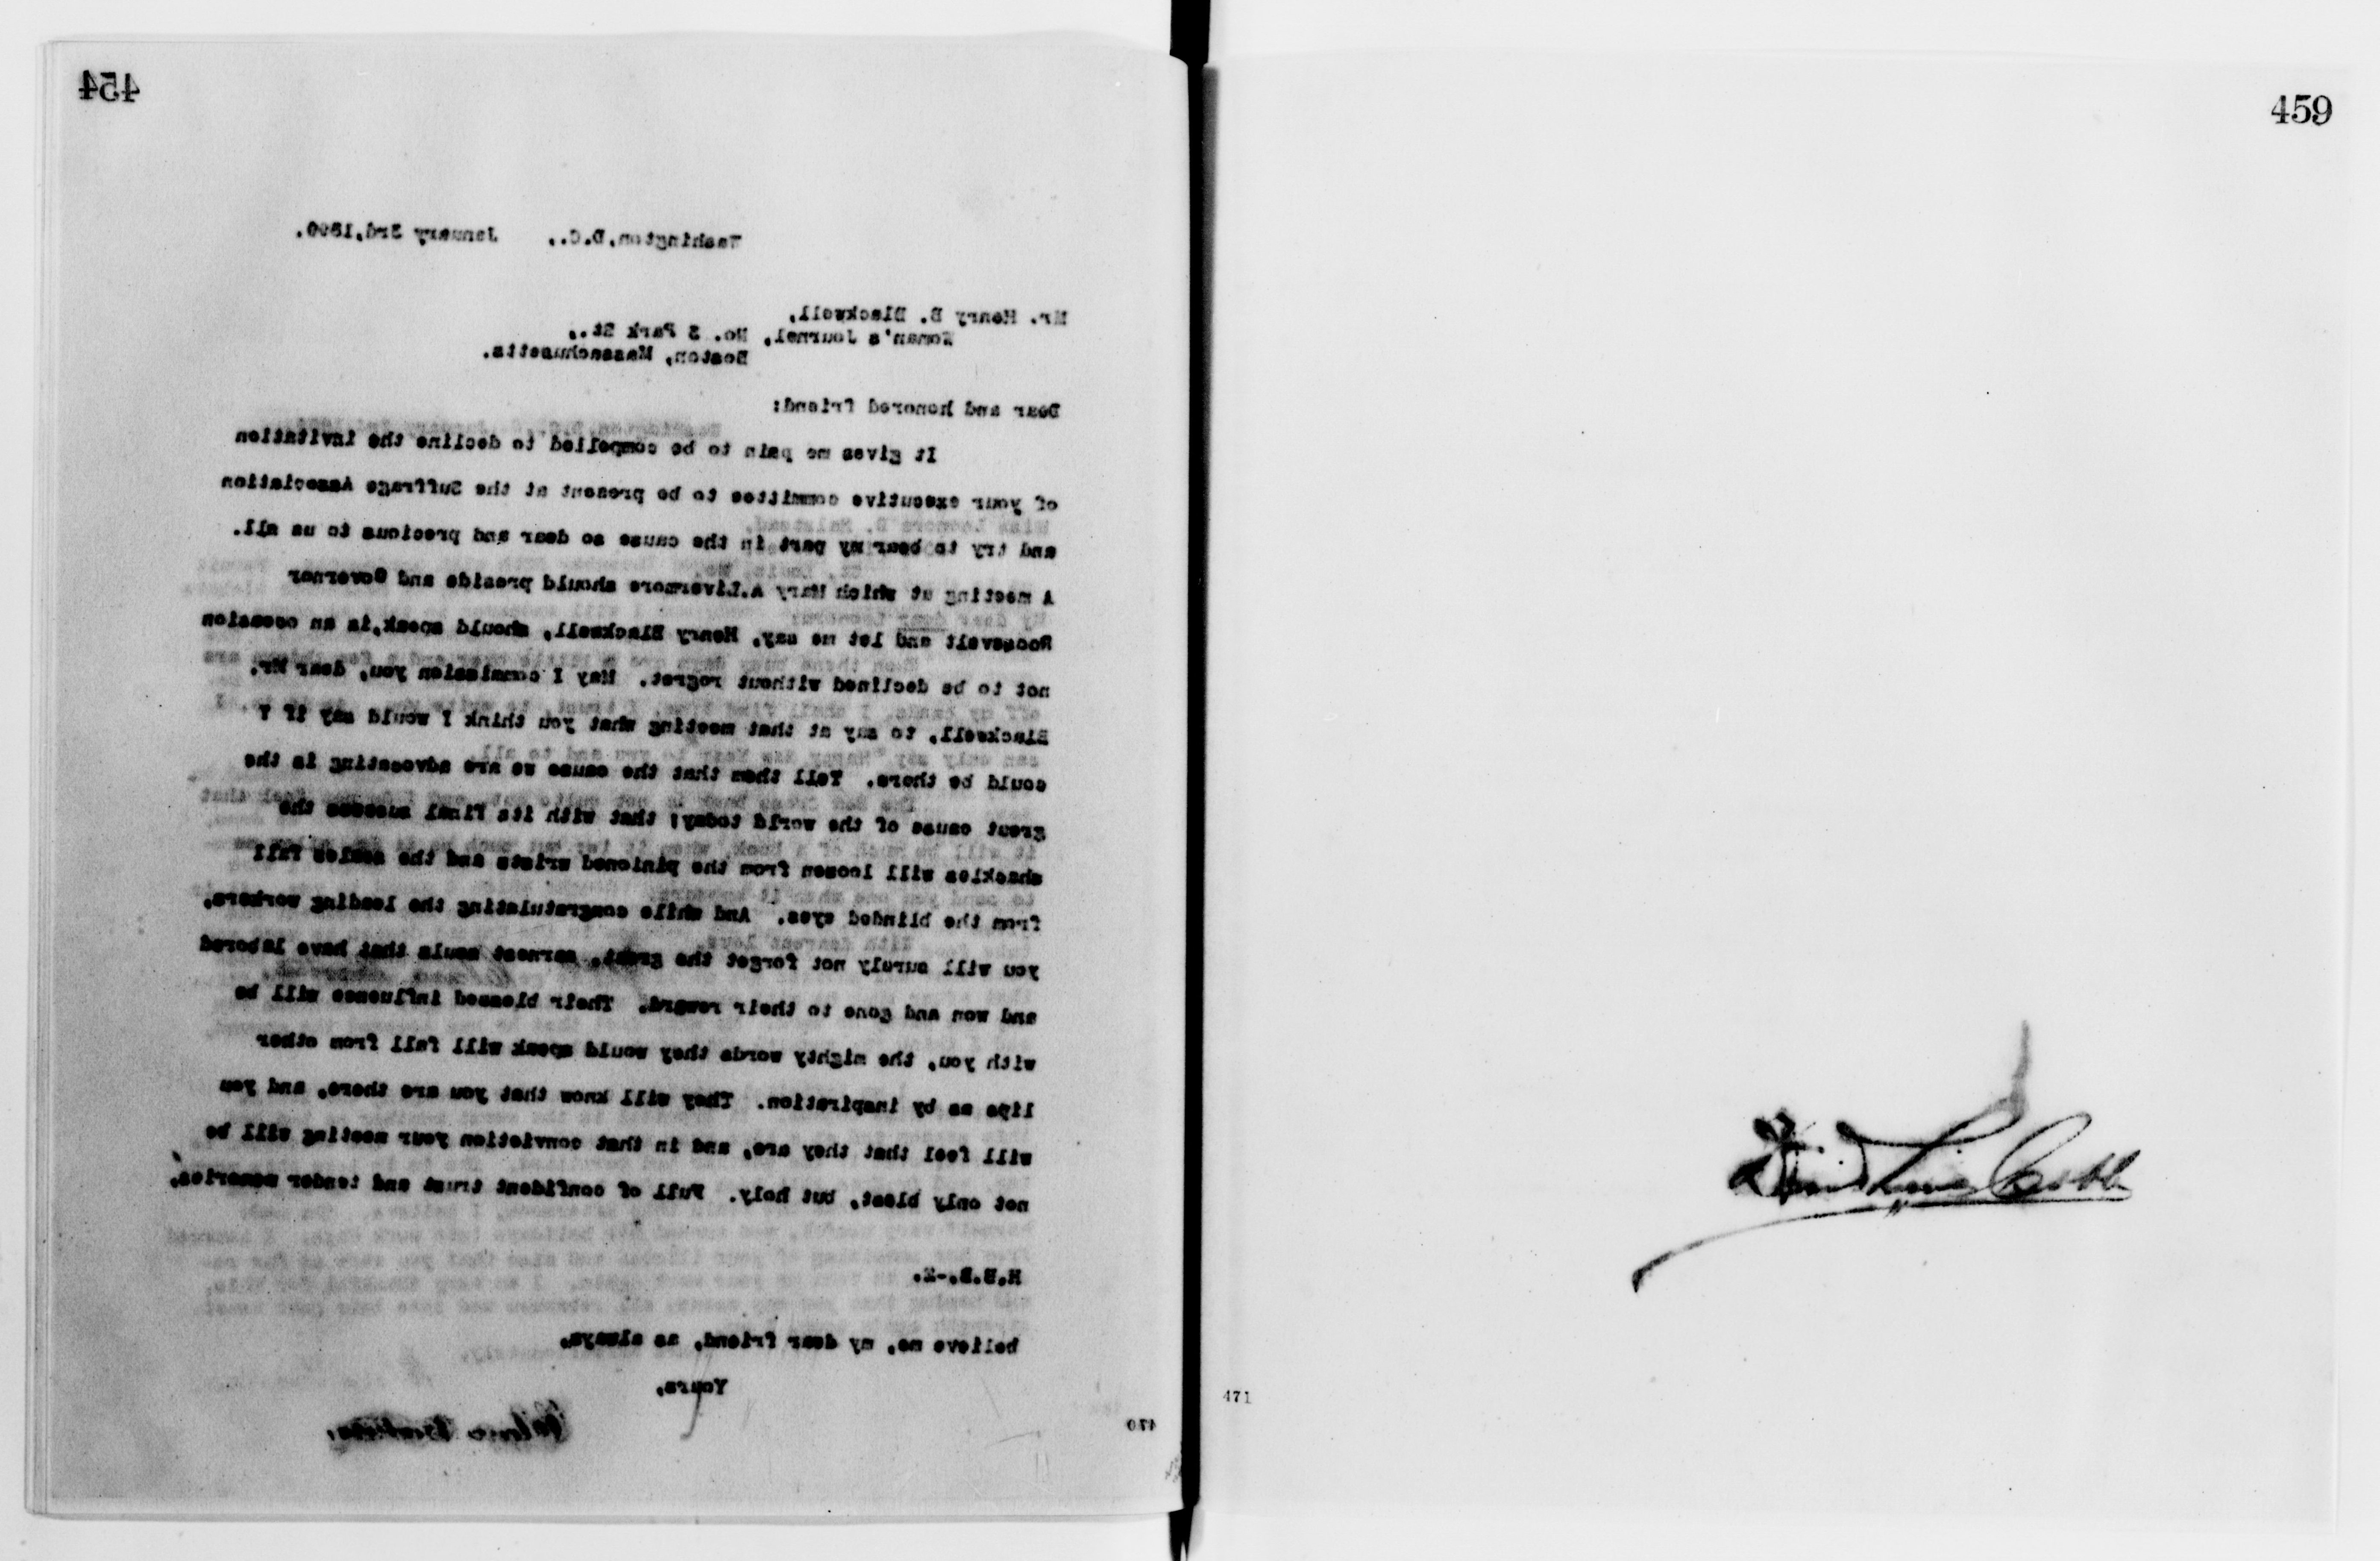 454
Washington, D.C., January 3rd, 1899.
Mr. Henry B. Blackwell,
Woman's Journal, No. 3 Park St.,
Boston, Massachusetts.
Dear and honored friend:
It gives me pain to be compelled to decline the invitation
of your executive committee to be present at the Suffrage Association
and try to bear my part in the cause so dear and precious to us all.
A meeting at which Mary A.Livermore should preside and Governor
Roosevelt and let me say, Henry Blackwell, should speak,is an occasion
not to be declined without regret. May I commission you, dear Mr.
Blackwell, to say at that meeting what you think I would say if I
could be there. Tell them that the cause we are advocating is the
great cause of the world today; that with its final success the
shackles will loosen from the pinioned wrists and the scales fall
from the blinded eyes. And while congratulating the leading workers,
you will surely not forget the great, earnest souls that have labored
and won and gone to their reward. Their blessed influence will be
with you, the mighty words they would speak will fall from other
lips as by inspiration. They will know that you are there, and you
will feel that they are, and in that conviction your meeting will be
not only blest, but holy. Full of confident trust and tender memories,
H.B.B.-2.
believe me, my dear friend, as always,
Yours,
470
459
471